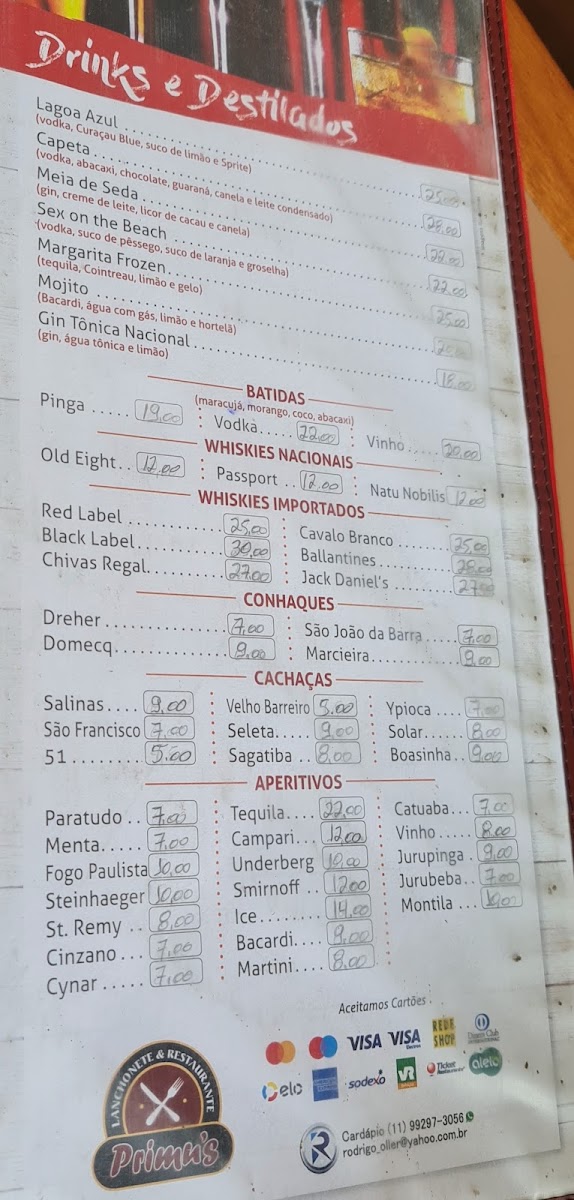 Drinks e Destilados
Lagoa Azul 25,00
(vodka, Curaçau Blue, suco de limão e Sprite)
Capeta 28,00
(vodka, abacaxi, chocolate, guaraná, canela e leite condensado)
Meia de Seda 22,00
(gin, creme de leite, licor de cacau e canela)
Sex on the Beach 22,00
(vodka, suco de pêssego, suco de laranja e groselha)
Margarita Frozen 25,00
(tequila, Cointreau, limão e gelo)
Mojito
(Bacardi, água com gás, limão e hortelã)
Gin Tônica Nacional 18,00
(gin, água tônica e limão)
BATIDAS
(maracujá, morango, coco, abacaxi)
Pinga 19,00 Vodka 22,00 Vinho 20,00
WHISKIES NACIONAIS
Old Eight 12,00 Passport 12,00 Natu Nobilis 12,00
WHISKIES IMPORTADOS
Red Label 25,00 Cavalo Branco 25,00
Black Label 30,00 Ballantines 25,00
Chivas Regal 27,00 Jack Daniel's 27,00
CONHAQUES
Dreher 7,00 São João da Barra 7,00
Domecq 9,00 Marcieira 9,00
CACHAÇAS
Salinas 9,00 Velho Barreiro 5,00 Ypioca 7,00
São Francisco 7,00 Seleta 9,00 Solar 8,00
51 5,00 Sagatiba 8,00 Boasinha 9,00
APERITIVOS
Paratudo 7,00 Tequila 22,00 Catuaba 7,00
Menta 7,00 Campari 12,00 Vinho 8,00
Fogo Paulista 10,00 Underberg 10,00 Jurupinga 9,00
Steinhaeger 10,00 Smirnoff 12,00 Jurubeba 7,00
St. Remy 8,00 Ice 14,00 Montila 10,00
Cinzano 7,00 Bacardi 9,00
Cynar 7,00 Martini 8,00
Aceitamos Cartões
VISA VISA Electron REDE SHOP Diners Club INTERNATIONAL
elo sodexo VR Ticket Restaurante alelo
LANCHONETE & RESTAURANTE
Primu's
Cardápio (11) 99297-3056
rodrigo_oller@yahoo.com.br